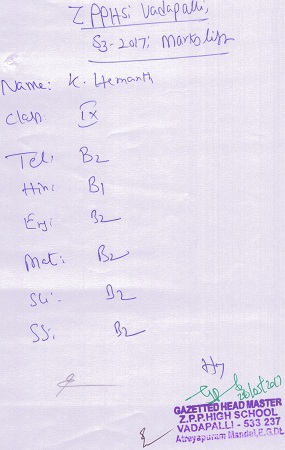 Z PPHS: Vadapalli,
S3-2017: Marks list
Name: K. Hemanth
Class IX
Tel: B2
Hin: B1
Eng: B2
Mat: B2
Sci: B2
SS: B2
GAZETTED HEAD MASTER
Z.P.P.HIGH SCHOOL
VADAPALLI - 533 237
Atreyapuram Mandal,E.G.Dt.